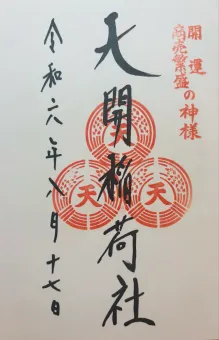 開運
商売繁盛の神様
天開稲荷社
天
天
天
令和六年八月十七日